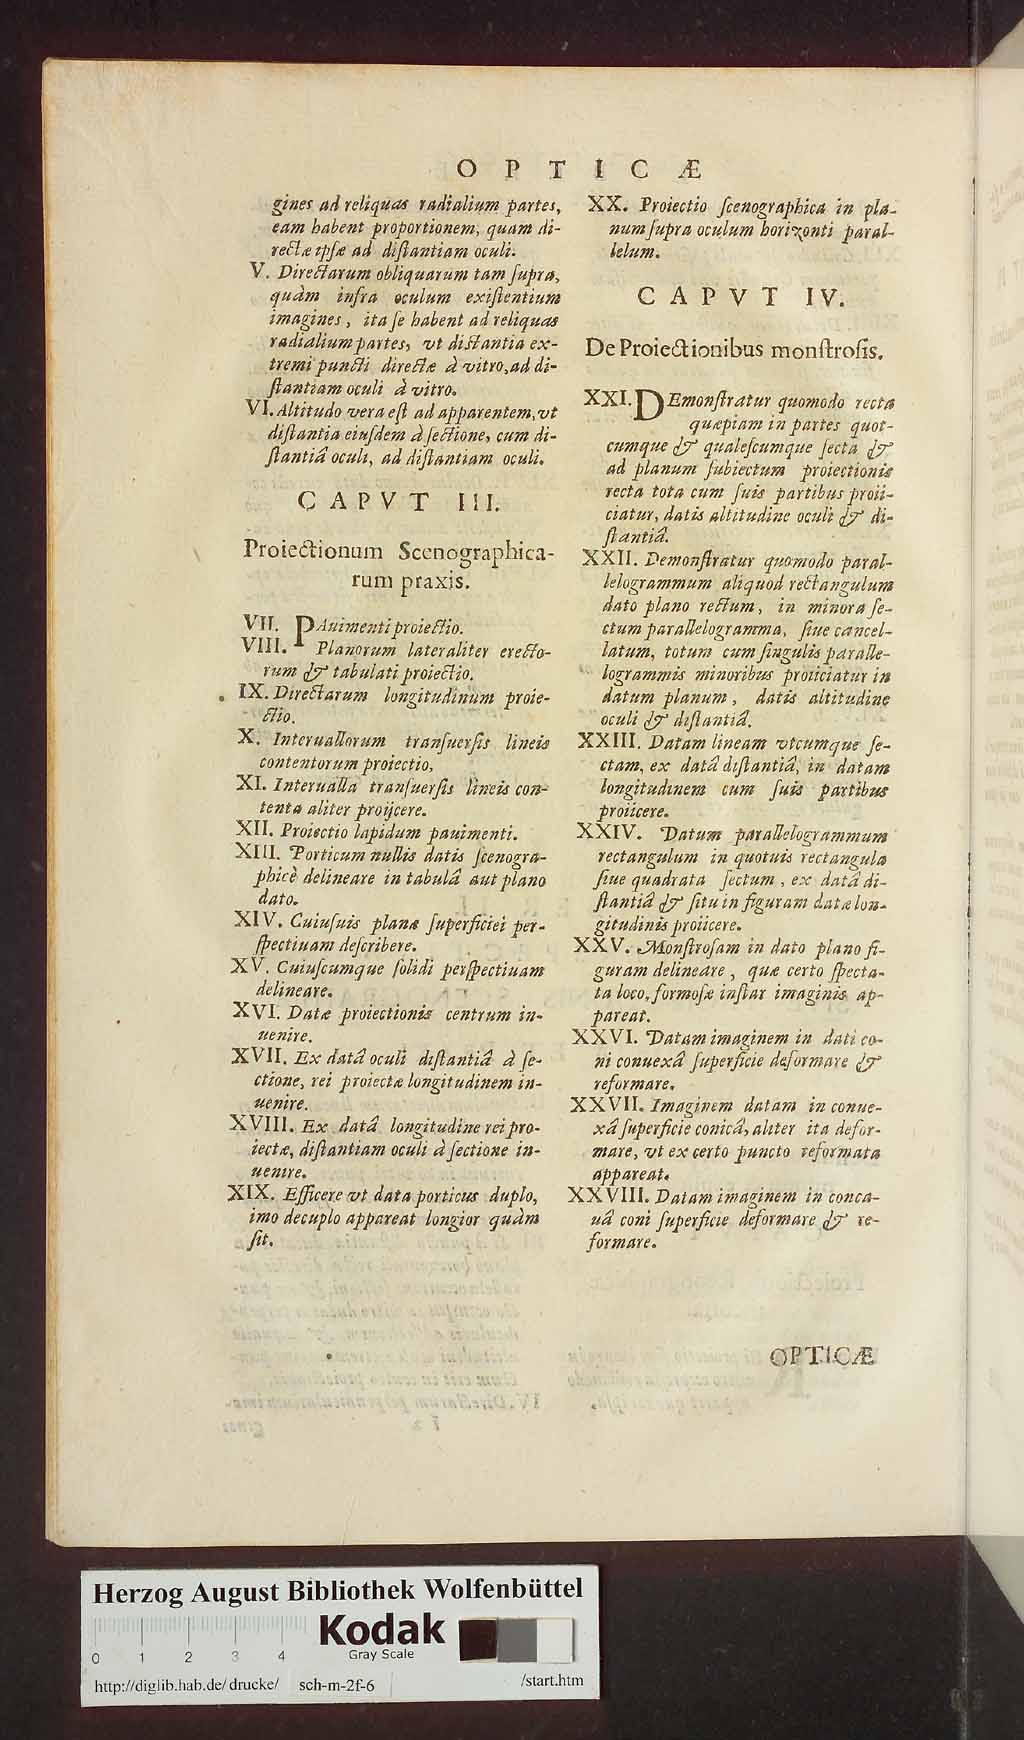 OPTICÆ
gines ad reliquas radialium partes,
eam habent proportionem, quam di-
rectæ ipsæ ad distantiam oculi.
V. Directarum obliquarum tam supra,
quàm infra oculum existentium
imagines, ita se habent ad reliquas
radialium partes, vt distantia ex-
tremi puncti directæ à vitro, ad di-
stantiam oculi à vitro.
VI. Altitudo vera est ad apparentem, vt
distantia eiusdem à sectione, cum di-
stantiâ oculi, ad distantiam oculi.
CAPVT III.
Proiectionum Scenographica-
rum praxis.
VII. PAuimenti proiectio.
VIII. Planorum lateraliter erecto-
rum & tabulati proiectio.
IX. Directarum longitudinum proie-
ctio.
X. Interuallorum transuersis lineis
contentorum proiectio,
XI. Interualla transuersis lineis con-
tenta aliter proijcere.
XII. Proiectio lapidum pauimenti.
XIII. Porticum nullis datis scenogra-
phicè delineare in tabulâ aut plano
dato.
XIV. Cuiusuis planæ superficiei per-
spectiuam describere.
XV. Cuiuscumque solidi perspectiuam
delineare.
XVI. Datæ proiectionis centrum in-
uenire.
XVII. Ex datâ oculi distantiâ à se-
ctione, rei proiectæ longitudinem in-
uenire.
XVIII. Ex datâ longitudine rei pro-
iectæ, distantiam oculi à sectione in-
uenire.
XIX. Efficere vt data porticus duplo,
imo decuplo appareat longior quàm
sit.
XX. Proiectio scenographica in pla-
num supra oculum horizonti paral-
lelum.
CAPVT IV.
De Proiectionibus monstrosis.
XXI. DEmonstratur quomodo recta
quæpiam in partes quot-
cumque & qualescumque secta &
ad planum subiectum proiectionis
recta tota cum suis partibus proii-
ciatur, datis altitudine oculi & di-
stantiâ.
XXII. Demonstratur quomodo paral-
lelogrammum aliquod rectangulum
dato plano rectum, in minora se-
ctum parallelogramma, siue cancel-
latum, totum cum singulis paralle-
logrammis minoribus proiiciatur in
datum planum, datis altitudine
oculi & distantiâ.
XXIII. Datam lineam vtcumque se-
ctam, ex datâ distantiâ, in datam
longitudinem cum suis partibus
proiicere.
XXIV. Datum parallelogrammum
rectangulum in quotuis rectangula
siue quadrata sectum, ex datâ di-
stantiâ & situ in figuram datæ lon-
gitudinis proiicere.
XXV. Monstrosam in dato plano fi-
guram delineare, quæ certo specta-
ta loco, formosæ instar imaginis ap-
pareat.
XXVI. Datam imaginem in dati co-
ni conuexâ superficie deformare &
reformare.
XXVII. Imaginem datam in conue-
xâ superficie conicâ, aliter ita defor-
mare, vt ex certo puncto reformata
appareat.
XXVIII. Datam imaginem in conca-
uâ coni superficie deformare & re-
formare.
OPTICÆ
Herzog August Bibliothek Wolfenbüttel
Kodak
Gray Scale
0 1 2 3 4
http://diglib.hab.de/drucke/ sch-m-2f-6 /start.htm